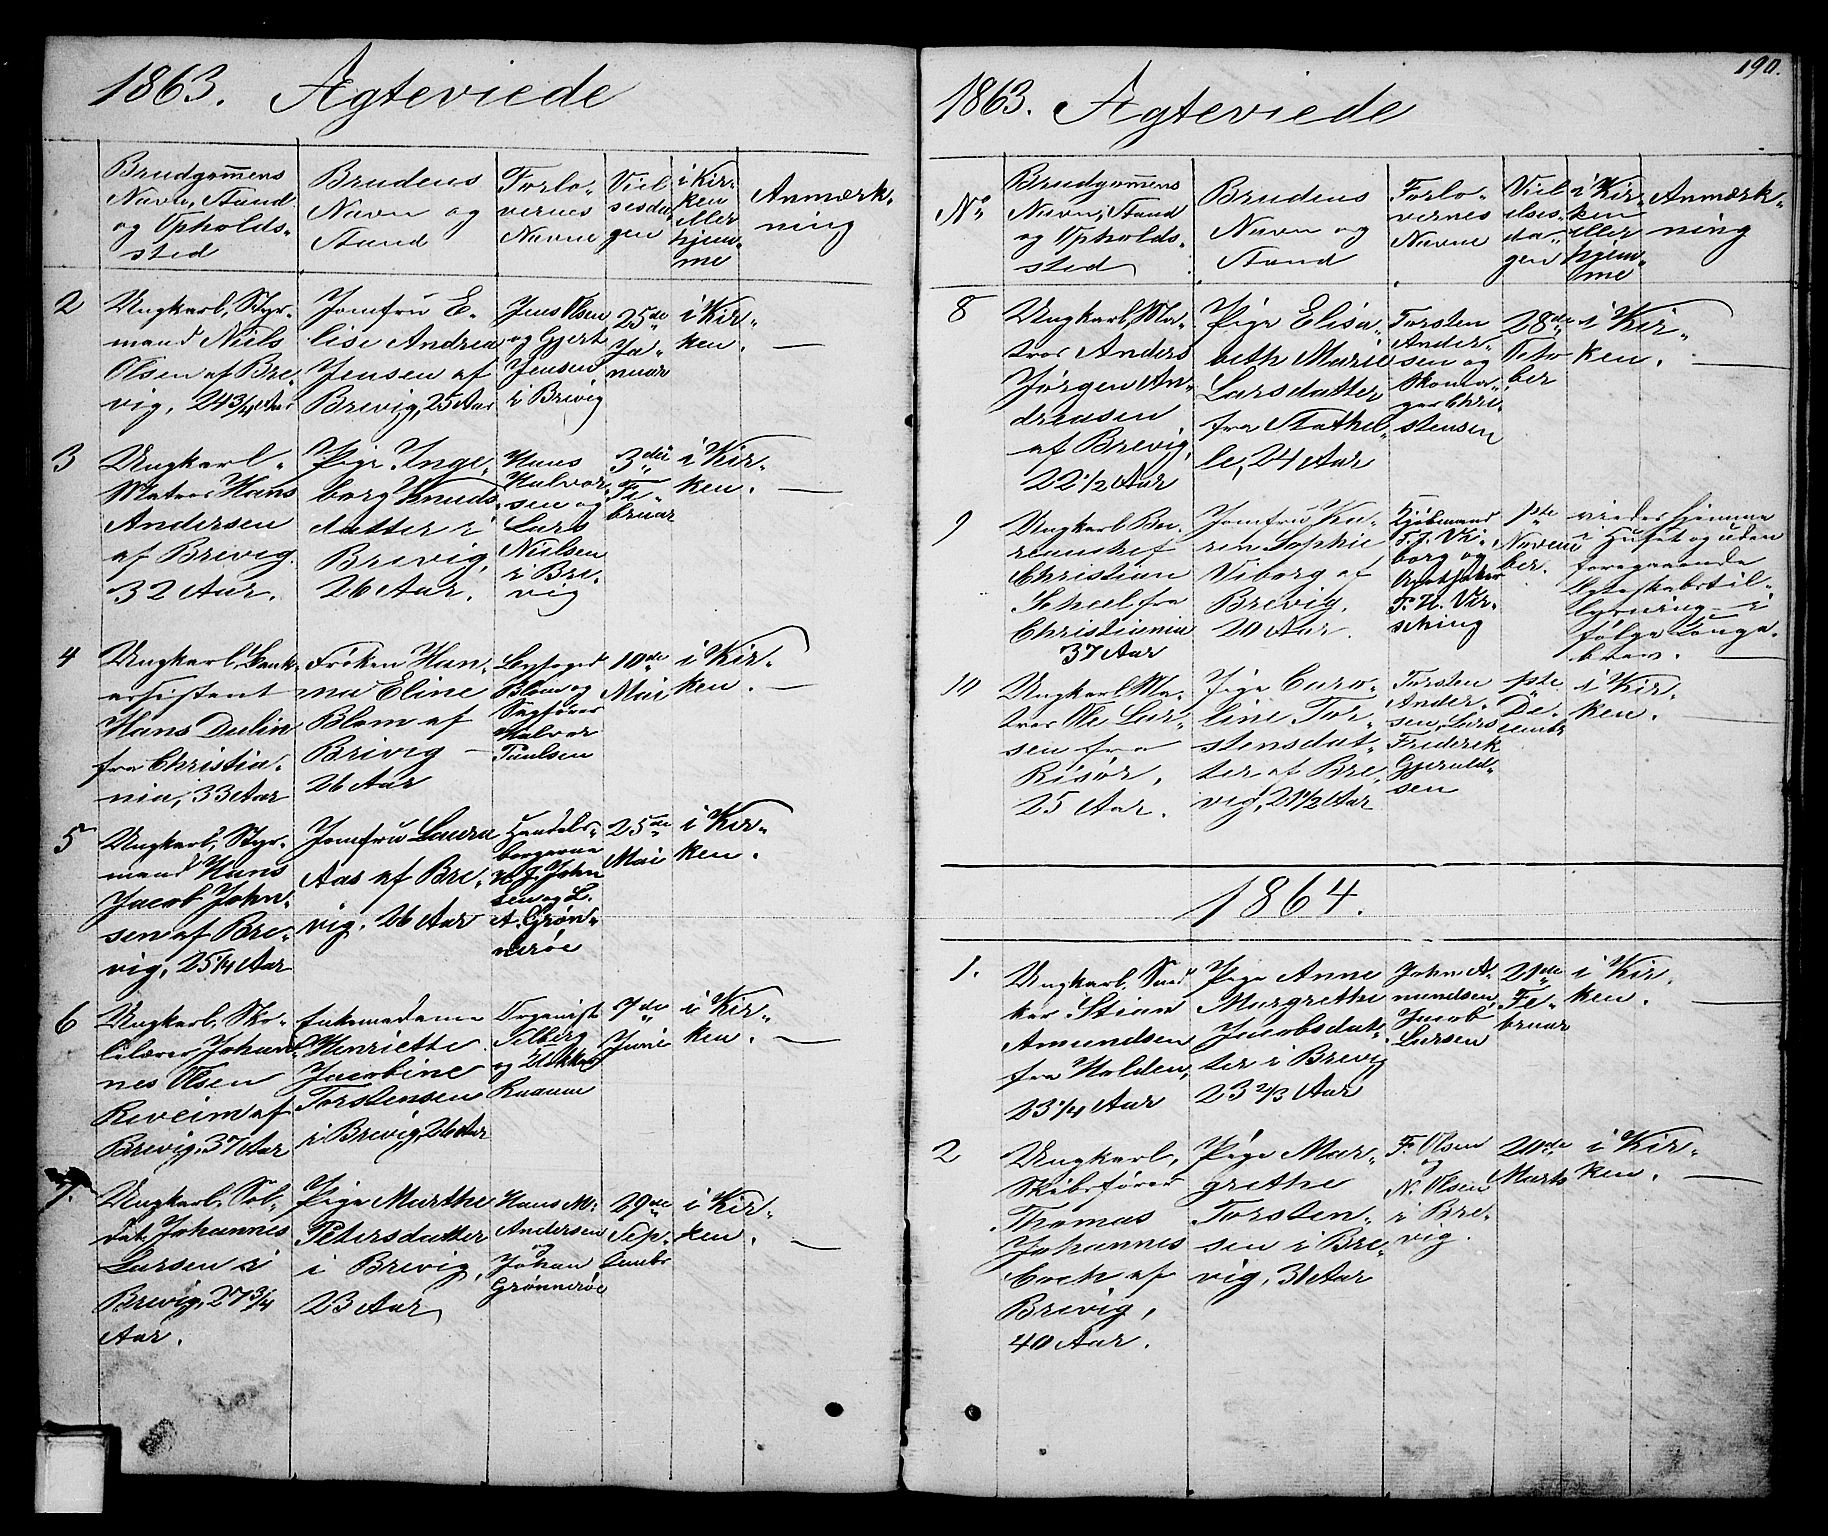 1863. Ægteviede
Brudgom̄ens
Navn, Stand
og Opholds-
sted
Brudens
Navn og
Stand
Forlo-
vernes
Navne
Viel
sesda
gen
i Kir-
ken
eller
hjem-
me
Anmærk-
ning
2
Ungkarl, Styr-
mand Niels
Olsen af Bre-
vig, 24 3/4 Aar
Jomfru E-
lise Andrea
Jensen af
Brevig, 25 Aar
Jens Olsen
og Gjert
Jensen
i Brevig
25de
Ja-
nuar
i Kir-
ken. —
3
Ungkarl
Matros Hans
Andersen
af Brevig.
32 Aar.
Pige Inge-
borg Knuds-
datter i
Brevig,
26 Aar.
Hans
Halvor-
sen og
Lars
Nielsen
i Bre-
vig
3die
Fe-
bruar
i Kir-
ken. —
4
Ungkarl, Bank-
assistent
Hans Dulin
fra Christia-
nia, 33 Aar
Frøken Han-
na Eline
Blom af
Brevig —
26 Aar
Byfoged
Blom og
Sagfører
Halvor
Paulsen
10de
Mai
i Kir-
ken. —
5
Ungkarl, Styr-
mand Hans
Jacob John-
sen af Bre-
vig, 25 1/4 Aar
Jomfru Laura
Aas af Bre-
vig. 26 Aar
Handels-
borgerne
H. J. John
sen og L.
A. Grøn-
nerøe
25de
Mai
i Kir-
ken.
6
Ungkarl, Sko-
lelærer Johan
nes Olsen
Reveim af
Brevig, 37 Aar
Enkemadame
Henriette
Jacobine
Torstensen
i Brevig, 26 Aar
Organist
Selberg
og Klokker
Knanum
7de
Juni
i Kir-
ken. —
7.
Ungkarl, Sol-
dat Johannes
Larsen i
Brevig, 27 3/4
Aar.
Pige Marthe
Petersdatter
i Brevig,
23 Aar
Hans M.
Andersen
og
Johan
Grønnerøe
29de
Sep-
tembr
i Kir-
ken. —
190.
1863. Ægteviede
No
Brudgom̄ens
Navn, Stand
og Opholds-
sted
Brudens
Navn og
Stand
Forlo-
vernes
Navne
Viel
elses-
da-
gen
i Kir-
ken
eller
hjem-
me
Anmærk-
ning
8
Ungkarl, Ma-
tros Anders
Jørgen An-
dreasen
af Brevig,
22 1/2 Aar
Pige Elisa-
beth Marie
Larsdatter
fra Stathel-
le, 24 Aar
Torsten
Ander-
sen og
Skoma-
ger Chri-
stensen
28de
Octo
ber
i Kir-
ken. —
9
Ungkarl Bu-
reauchef
Christian
Scheel fra
Christiania
37 Aar
Jomfru Ka-
ren Sophie
Viborg af
Brevig.
20 Aar.
Kjøbmand
F. J. Vi-
borg og
Apotheker
F. H. Vir-
sching
1ste
Novem
ber.
viedes hjemme
i Huset og uden
foregaaende
Ægteskabstil-
lysning i
følge Konge-
brev. —
10
Ungkarl Ma-
tros Ole Lar-
sen fra
Risør.
25 Aar.
Pige Caro-
line Tor-
stensdat-
ter af Bre-
vig, 21 1/2 Aar
Torsten
Ander-
sen, Lars
Frederik
Gjeruld-
sen
1ste
De-
cembr
i Kir-
ken. —
1864.
1.
Ungkarl, Sned
ker Stian
Amundsen
fra Holden,
23 1/4 Aar
Pige Anne
Margrethe
Jacobsdat-
ter i Brevig
23 2/3 Aar
John A-
mundsen,
Jacob
Larsen
21de
Fe-
bruar
i Kir.
ken. —
2
Ungkarl,
Skibsfører
Thomas
Johannes
Coch af
Brevig,
40 Aar.
Pige Mar-
grethe
Torsten-
sen i Bre-
vig, 31 Aar
F. Olsen
og
N. Olsen
i Bre-
vig.
20de
Marts
i Kir-
ken. —